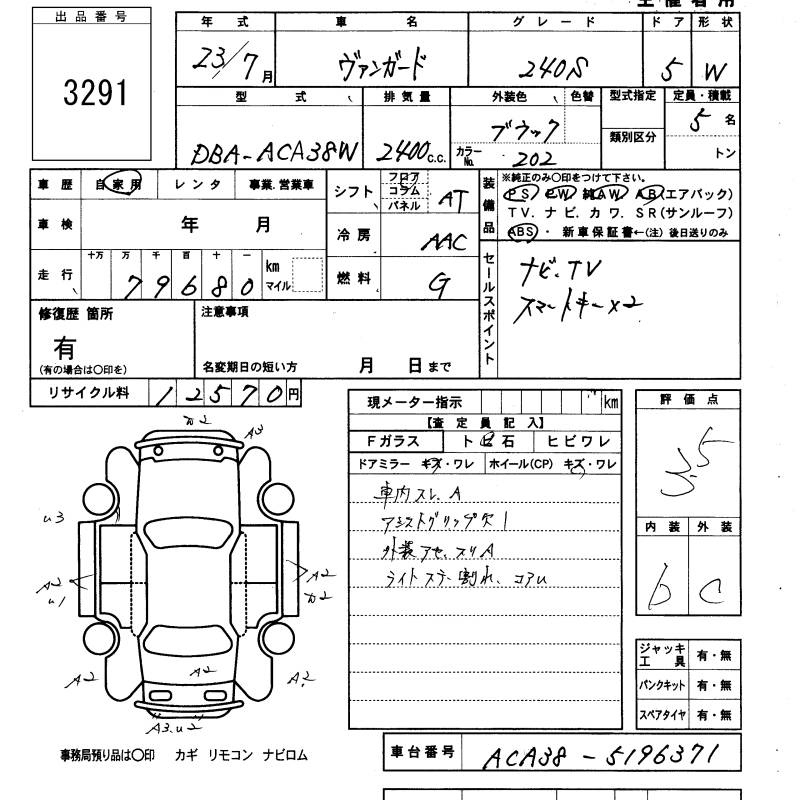 出品番号
3291
年式 車名 グレード ドア 形状
23/7月 ヴァンガード 240S 5 W
型式 排気量 外装色 色替 型式指定 定員・積載
DBA-ACA38W 2400c.c. ブラック 類別区分 5名
カラーNo. 202 トン
車歴 自家用 レンタ 事業.営業車
車検 年 月
走行 十万 万 千 百 十 一 km マイル
79680
シフト フロア コラム パネル AT
冷房 AAC
燃料 G
装備品 ※純正のみ〇印をつけて下さい。
PS. PW. 純AW. AB(エアバック)
TV. ナビ. カワ. SR(サンルーフ)
ABS・ 新車保証書←(注) 後日送りのみ
セールスポイント
ナビ.TV
スマートキー×2
修復歴 箇所
有
(有の場合は〇印を)
注意事項
名変期日の短い方 月 日まで
リサイクル料 12570円
現メーター指示 km
【査定員記入】
Fガラス トビ石 ヒビワレ
ドアミラー キズ・ワレ ホイール(CP) キズ・ワレ
車内スレ.A
アシストグリップ欠1
外装アセ.スリA
ライトステー割れ.コアU
評価点
3.5
内装 外装
b C
ジャッキ工具 有・無
パンクキット 有・無
スペアタイヤ 有・無
A3
u3
A2
u1
A2
A2
A2
A2
A3.u2
事務局預り品は〇印 カギ リモコン ナビロム
車台番号 ACA38-5196371